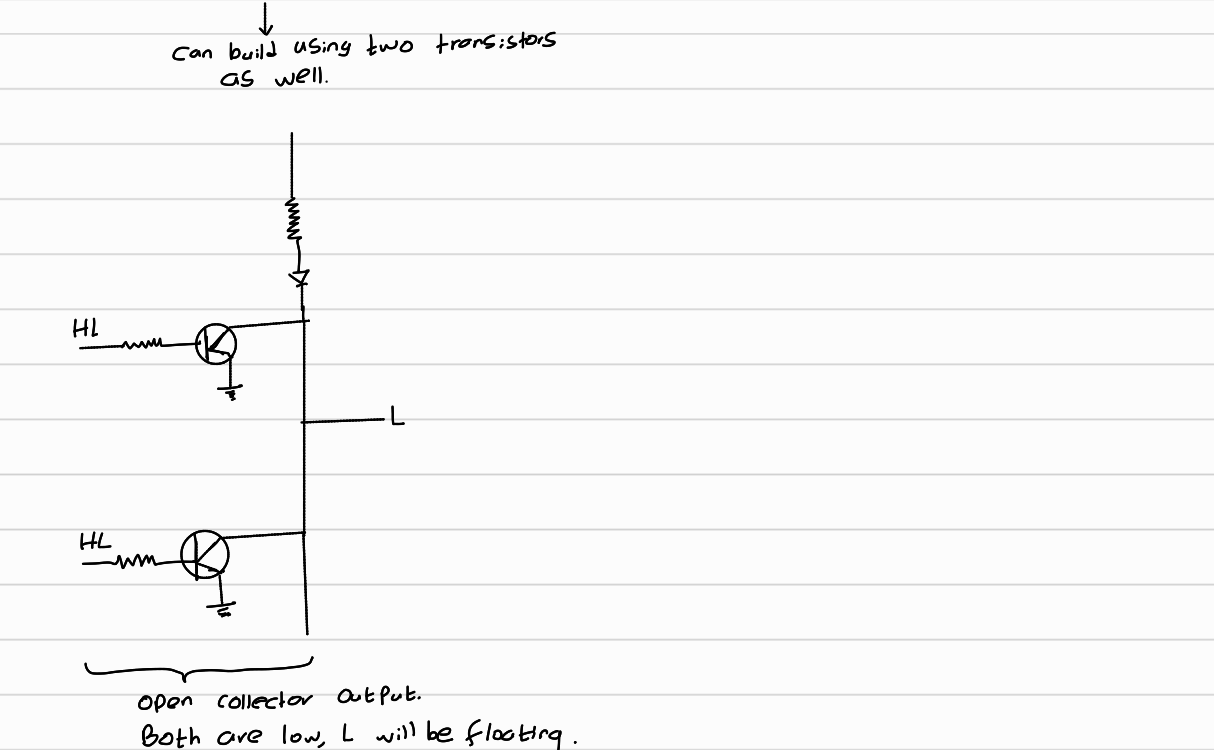 can build using two transistors
as well.
HL
L
HL
open collector output.
Both are low, L will be floating.